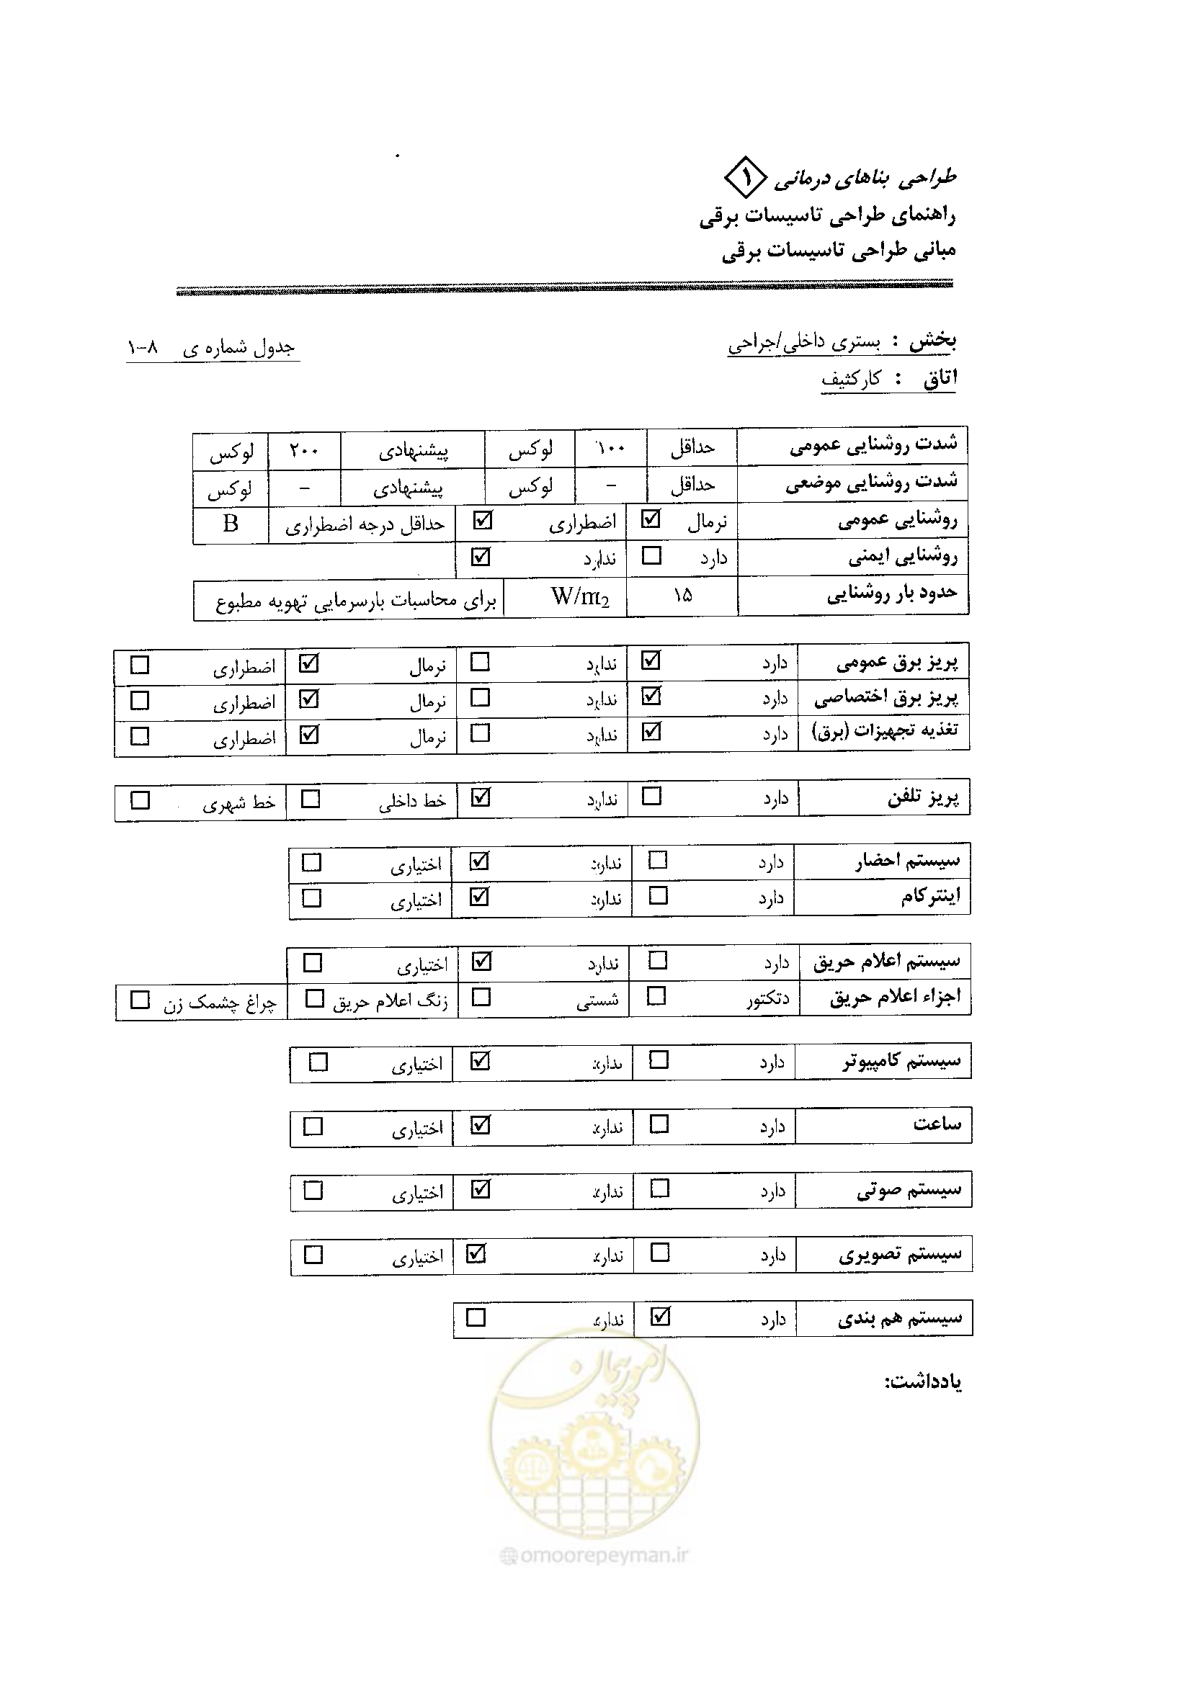 طراحی بناهای درمانی ۱
راهنمای طراحی تاسیسات برقی
مبانی طراحی تاسیسات برقی
بخش : بستری داخلی/جراحی
جدول شماره ی ۸-۱
اتاق : کارکثیف
شدت روشنایی عمومی حداقل ۱۰۰ لوکس پیشنهادی ۲۰۰ لوکس
شدت روشنایی موضعی حداقل – لوکس پیشنهادی – لوکس
روشنایی عمومی نرمال ☑ اضطراری ☑ حداقل درجه اضطراری B
روشنایی ایمنی دارد ☐ ندارد ☑
حدود بار روشنایی ۱۵ W/m2 برای محاسبات بارسرمایی تهویه مطبوع
پریز برق عمومی دارد ☑ ندارد ☐ نرمال ☑ اضطراری ☐
پریز برق اختصاصی دارد ☑ ندارد ☐ نرمال ☑ اضطراری ☐
تغذیه تجهیزات (برق) دارد ☑ ندارد ☐ نرمال ☑ اضطراری ☐
پریز تلفن دارد ☐ ندارد ☑ خط داخلی ☐ خط شهری ☐
سیستم احضار دارد ☐ ندارد ☑ اختیاری ☐
اینترکام دارد ☐ ندارد ☑ اختیاری ☐
سیستم اعلام حریق دارد ☐ ندارد ☑ اختیاری ☐
اجزاء اعلام حریق دتکتور ☐ شستی ☐ زنگ اعلام حریق ☐ چراغ چشمک زن ☐
سیستم کامپیوتر دارد ☐ ندارد ☑ اختیاری ☐
ساعت دارد ☐ ندارد ☑ اختیاری ☐
سیستم صوتی دارد ☐ ندارد ☑ اختیاری ☐
سیستم تصویری دارد ☐ ندارد ☑ اختیاری ☐
سیستم هم بندی دارد ☑ ندارد ☐
یادداشت:
امور پیمان
@omoorepeyman.ir